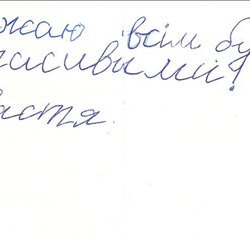 жаю всім бу
расивыми!
астя.